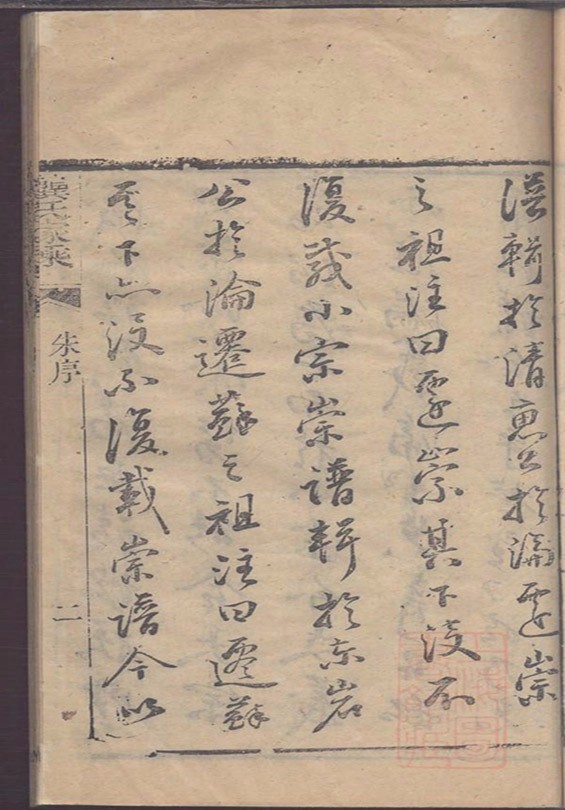 譜輯於清惠公於論遷崇
之祖注曰遷崇其下段不
復載小宗崇譜輯於東岩
公於論遷蘇之祖注曰遷蘇
其下亦段不復載崇譜今以
朱序
二